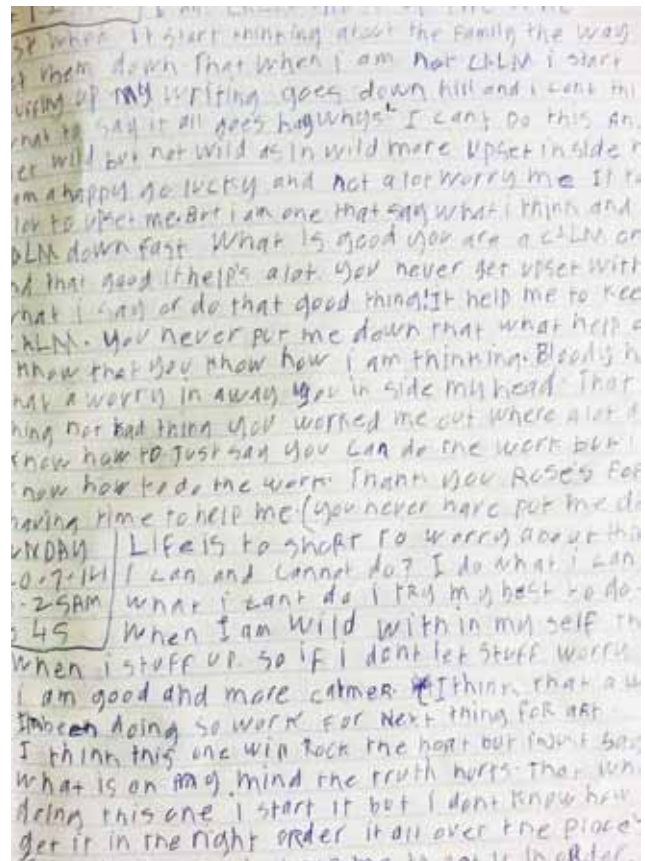 when it start thinking about the Family the way
them down That when I am not CALM i start
up my writing goes down hill and i cant thi
to say it all goes haywhys I cant Do this An
wild but not wild as in wild more upset inside
am a happy go lucky and not alot worry me It
to upset me. But i am one that say what i think and
down fast. What is good you are a CALM
that good it help's alot. you never get upset with
I say or do that good thing! It help me to kee
CALM. you never put me down that what help
know that you know how i am thinking. Bloody
a worry in away you in side my head. That
not bad thing you worked me out where alot
know how to Just say you can do the work but i
now how to do the work. Thank you Roses For
having time to help me (you never hare put me
NDAY Life is to short to worry about thi
0-7-14 I can and cannot do? I do what i can
25AM what i cant do i try my best to do
45 When I am wild with in my self
When i stuff up. so if i dont let stuff worry
i am good and more calmer. I think that a
been doing so work For Next thing for art
I think this one win Rock the boat but
what is on my mind the truth hurts. That
doing this one i start it but i dont know how
get it in the right order it all over the place